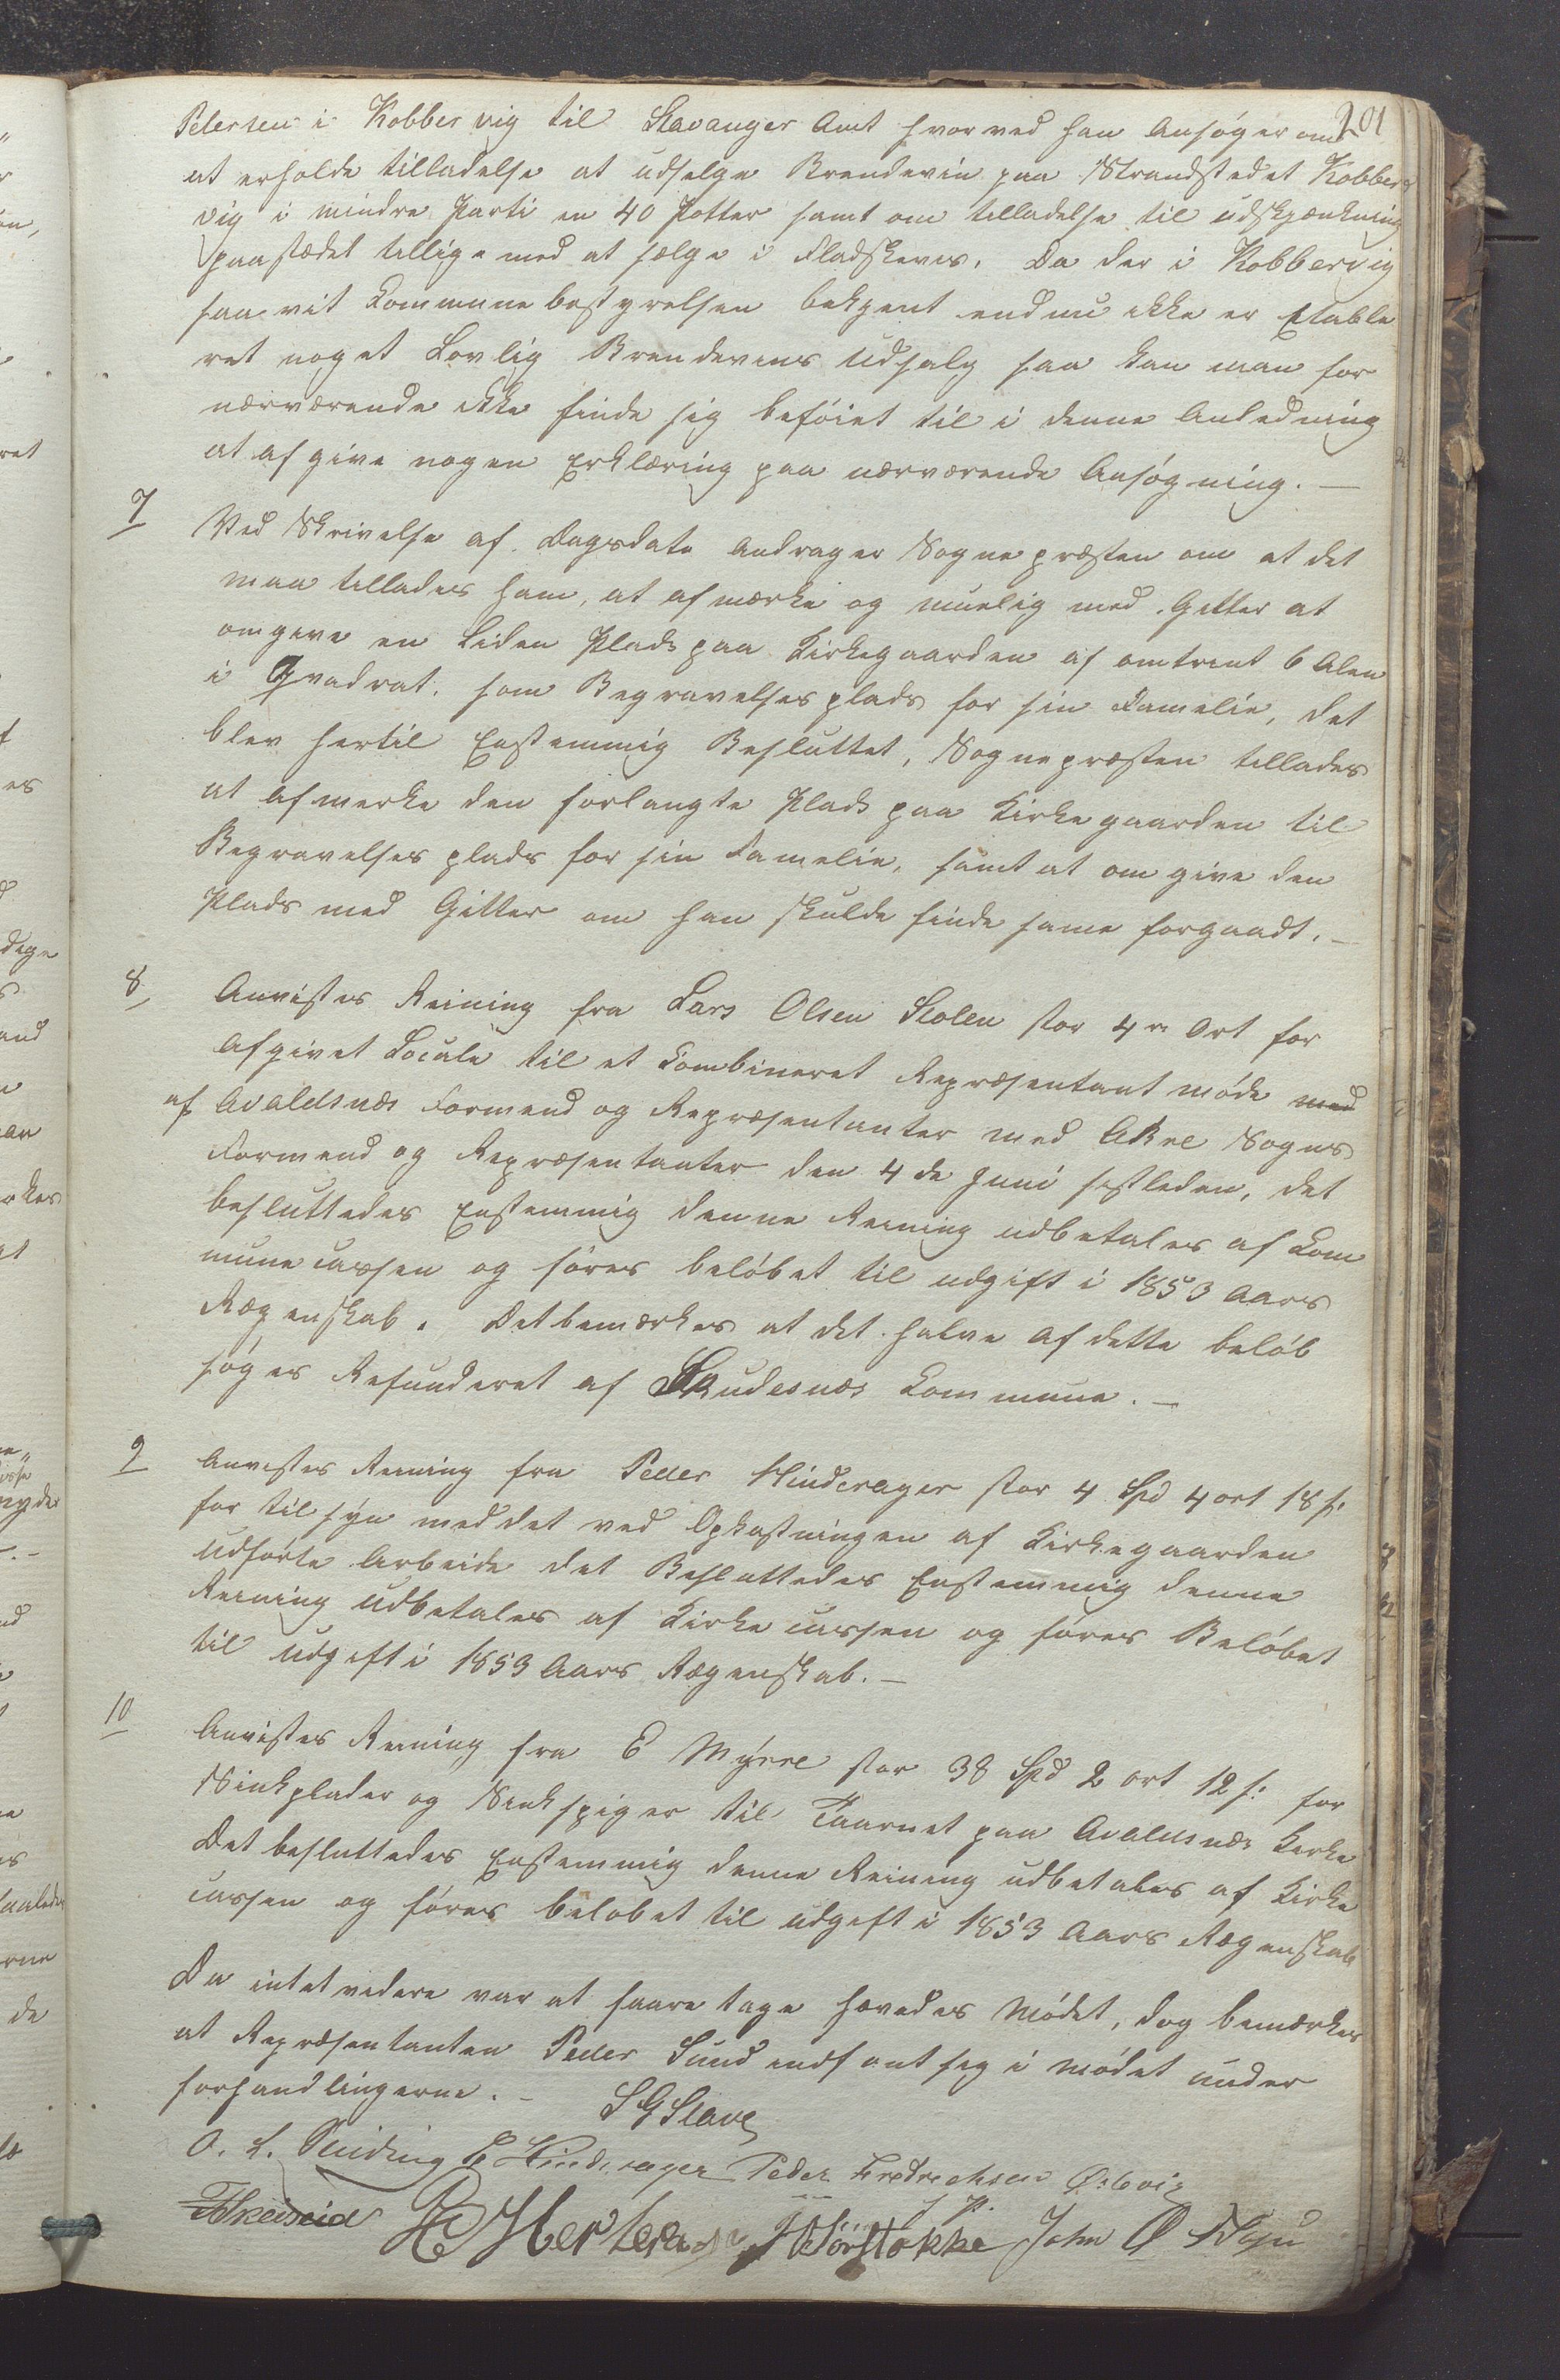 201
Petersen i Kobbervig til Stavanger Amt hvorved han Ansøger om
at erholde tilladelse at udselge Brendevin paa Strandstedet Kobber
vig i mindre Parti en 40 Potter samt om tilladelse til udskjænkning
paa stædet tillige med at sælge i Fladskevis. Da der i Kobbervig
saavit Commune bestyrelsen bekjent endnu ikke er Etable
ret noget Lovlig Brendevins Udsalg saa kan man for
nærværende ikke finde sig beføiet til i denne Anledning
at afgive nogen Erklæring paa nærværende Ansøgning. —
7 Ved Skrivelse af Dagsdato Andrager Sognepræsten om at det
maa tillades ham, at afmærke og muelig med Gitter at
omgive en Liden Plads paa Kirkegaarden af omtrent 6 Alen
i Qvadrat som Begravelsesplads for sin Famelie, det
blev hertil Enstemmig Besluttet, Sognepræsten tillades
at afmerke den forlangte Plads paa Kirkegaarden til
Begravelses plads for sin Famelie, samt at omgive den
Plads med Gitter om han skulde finde same forgaadt. —
8 Anvistes Reining fra Lars Olsen Stolen stor 4re Ort for
Afgivet Locale til et Combineret Repræsentant møde med
af Avaldsnæs Formend og Repræsentanter med Akre Sogns
Formend og Repræsentanter den 4de Juni sistleden, det
besluttedes Enstemmig denne Reining udbetales af Com
mune cassen og føres beløbet til udgift i 1853 Aars
Regenskab. Det bemærkes at det halve af dette beløb
søges Refunderet af Skudesnæs Commune. —
9 Anvistes Reining fra Peder Hinderager stor 4 Spd 4 ort 18 s.
for tilsyn med det ved Opkastningen af Kirkegaarden
udførte Arbeide det Besluttedes Enstemmig denne
Reining udbetales af Kirke cassen og føres Beløbet
til udgift i 1853 Aars Regenskab. —
10 Anvistes Reining fra E Myhre stor 38 Spd 2 ort 12 s: for
Sinkplader og Sinkspiger til Taarnet paa Avaldsnæs Kerke
Det besluttedes Enstemmig denne Reining udbetales af Kirke
cassen og føres beløbet til udgift i 1853 Aars Regenskab
Da intet videre var at faaretage hævedes Mødet, dog bemærkes
at Repræsentanten Peder Sund indfant seg i mødet under
forhandlingerne. —
S G Slave
O. L. Sniding P Hinderager Peder Fredrechsen
John Ø